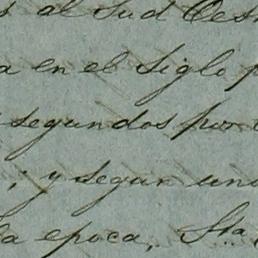 al Sud Oes
a en el Siglo p
segundos por
; y segun uno
la epoca, Sta.